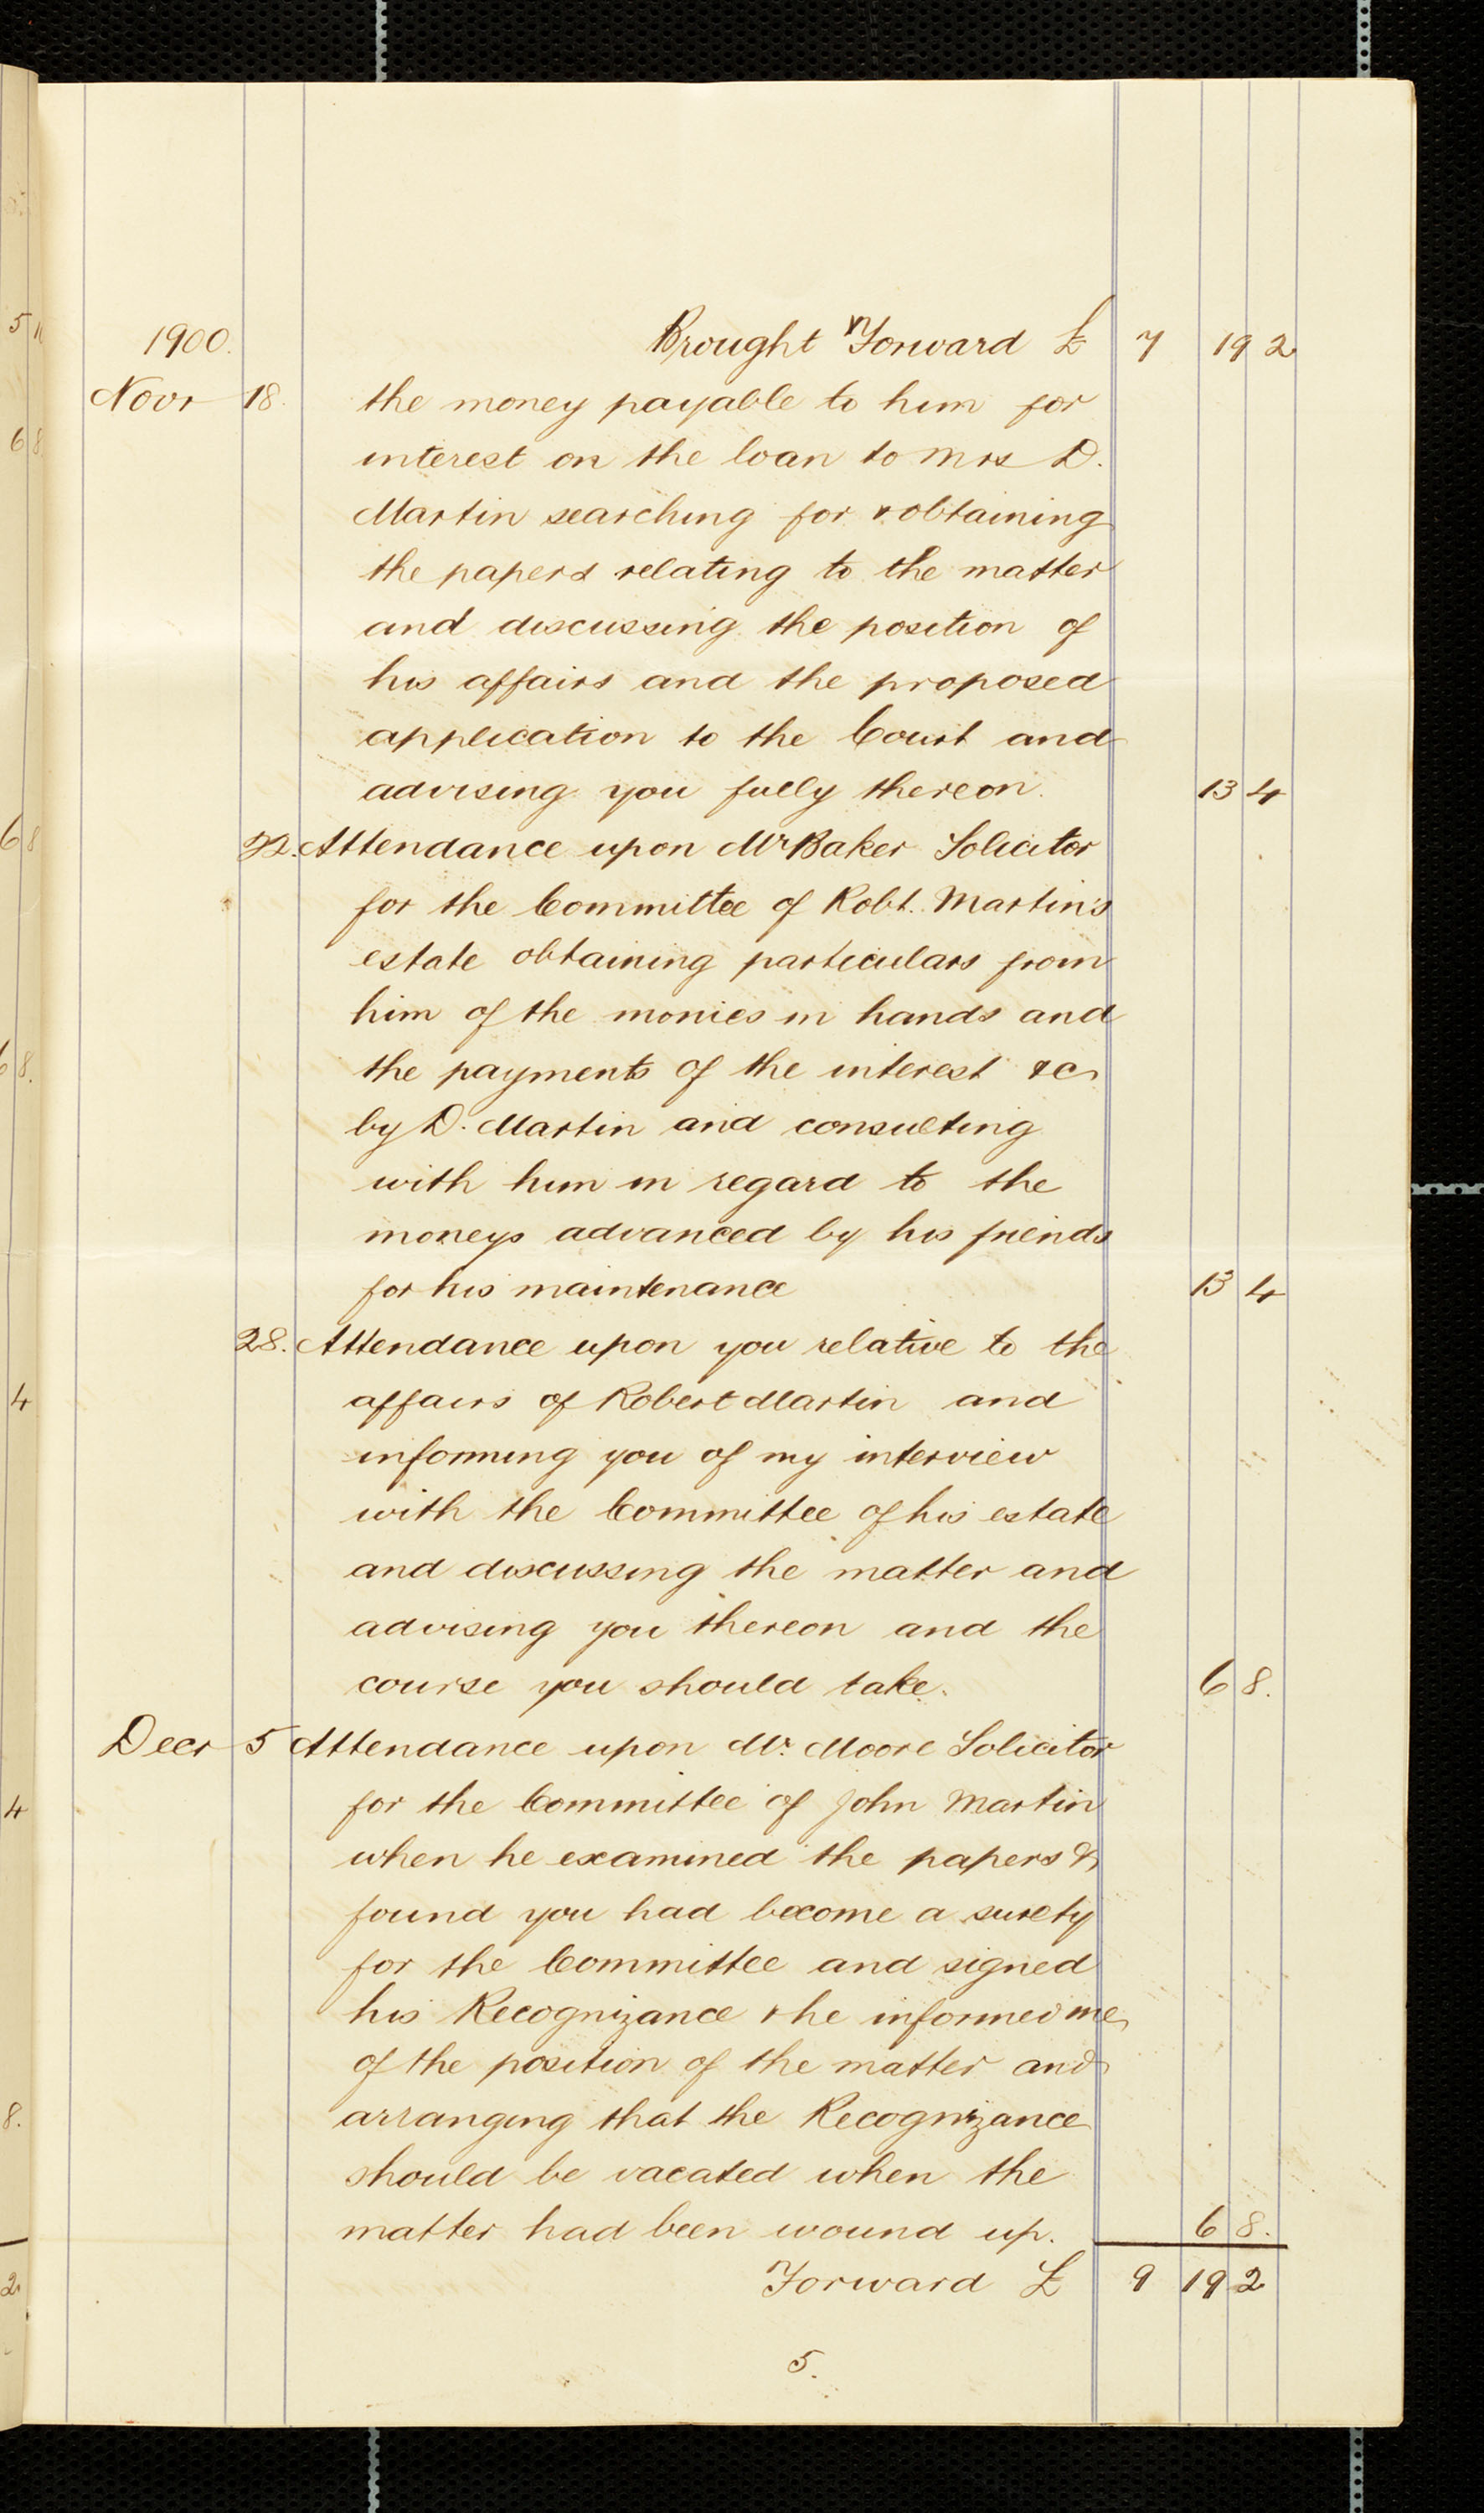 1900. Brought Forward £ 7 19 2
Novr 18. the money payable to him for
interest on the loan to Mrs D.
Martin searching for & obtaining
the papers relating to the matter
and discussing the position of
his affairs and the proposed
application to the Court and
advising you fully thereon. 13 4
22. Attendance upon Mr Baker Solicitor
for the Committee of Robt. Martin's
estate obtaining particulars from
him of the monies in hands and
the payments of the interest &c
by D. Martin and consulting
with him in regard to the
moneys advanced by his friends
for his maintenance 13 4
28. Attendance upon you relative to the
affairs of Robert Martin and
informing you of my interview
with the Committee of his estate
and discussing the matter and
advising you thereon and the
course you should take. 6 8.
Decr 5 Attendance upon Mr. Moore Solicitor
for the Committee of John Martin
when he examined the papers &
found you had become a surety
for the Committee and signed
his Recognizance & he informed me
of the position of the matter and
arranging that the Recognizance
should be vacated when the
matter had been wound up. 6 8.
Forward £ 9 19 2
5.